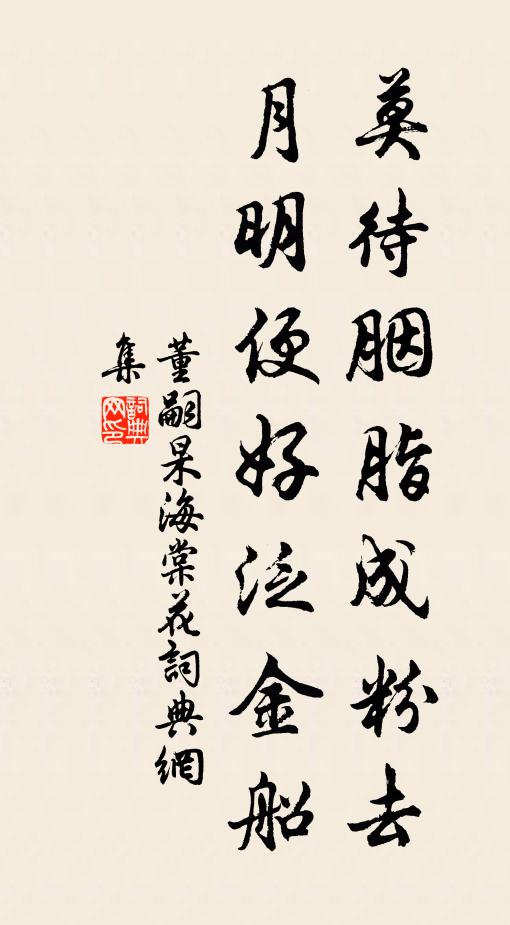 莫待胭脂成粉去
月明便好泛金船
董嗣杲海棠花詞典網
集
詞典网印